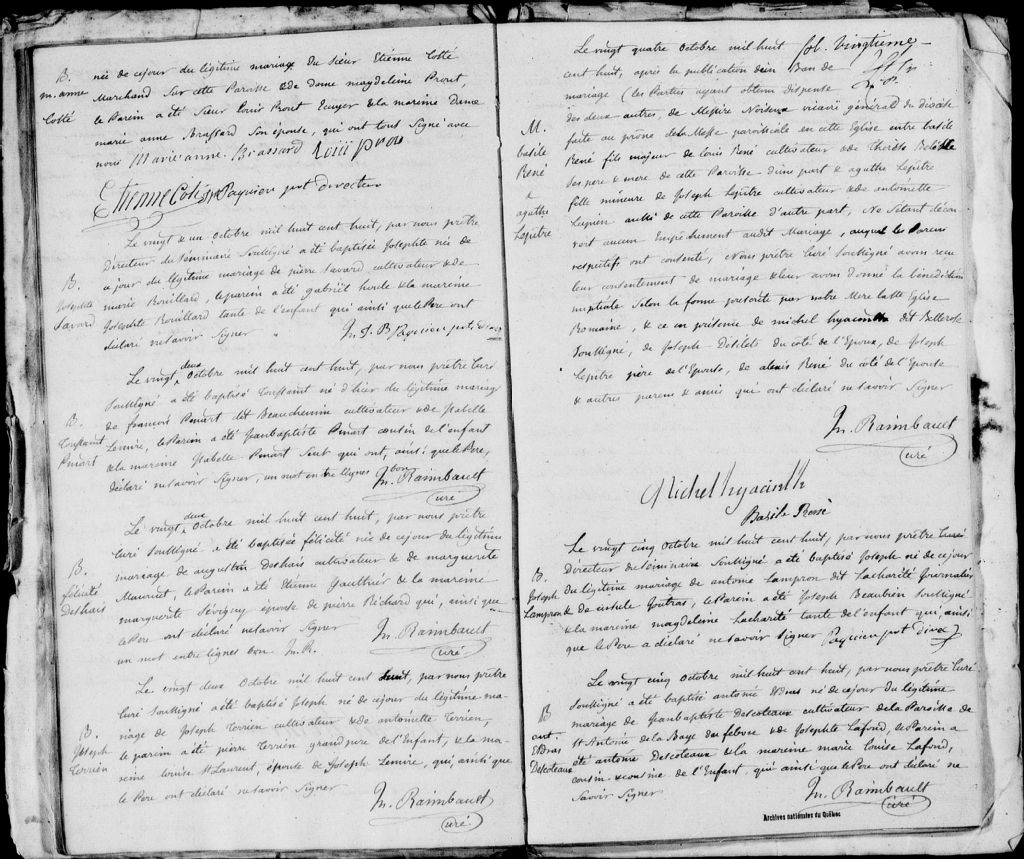 B.
m. anne
Cotté
née de cejour du légitime mariage du Sieur Etienne Cotté
Marchand Sur cette Paroisse & de dame magdeleine Prout,
le Parein a été Sieur Louis Prout Ecuyer & la mareine Dame
marie anne Brassard Son épouse, qui ont tous Signé avec
nous Marie anne Brassard Louis Prou
Etienne Coté Paquien pst directeur
B.
Josephte
Savard
Le vingt & un Octobre mil huit cent huit, par nous prêtre
Directeur du Séminaire Soussigné a été baptisée Josephte née de
ce jour du légitime mariage de pierre Savard cultivateur & de
marie Rouillard, le parein a été gabriel houle & la mareine
Josephte Rouillard tante de l'enfant qui ainsi que le Pere ont
déclaré ne Savoir Signer
B.
Toussaint
Pinart
Le vingt deux Octobre mil huit cent huit, par nous prêtre Curé
Soussigné a été baptisé Toussaint né d'hier du légitime mariage
de francois Pinart dit Beauchemin cultivateur & de Isabelle
Lemire, le Parein a été Jeanbaptiste Pinart cousin de l'enfant
& la mareine Isabelle Pinart Sœur qui ont, ainsi que le Pere,
déclaré ne Savoir Signer, un mot entre lignes bon
Raimbault
curé
B.
félicité
Deshais
Le vingt deux Octobre mil huit cent huit, par nous prêtre
Curé Soussigné a été baptisée félicité née de cejour du légitime
mariage de augustin Deshais cultivateur & de marguerite
Mauriut, le Parein a été Etienne Gauthier & la mareine
marguerite Sévigny épouse de pierre Richard qui, ainsi que
le Pere ont déclaré ne Savoir Signer
Raimbault
curé
un mot entre lignes bon
B.
Joseph
Terrien
Le vingt deux Octobre mil huit cent huit, par nous prêtre
Curé Soussigné a été baptisé Joseph né de cejour du légitime ma-
riage de Joseph Terrien cultivateur & de antoinette Terrien,
le parein a été pierre Terrien grand pere de l'Enfant, & la ma-
reine Louise St Laurent, épouse de Joseph Lemire, qui, ainsi que
le Pere ont déclaré ne Savoir Signer
Raimbault
curé
fol. vingtieme
M.
basile
René
&
agathe
Lepitre
Le vingt quatre Octobre mil huit
cent huit, après la publication d'un Ban de
mariage (les Parties ayant obtenu dispense
des deux autres, de Messire Noiseux vicaire général du diocèse
faite au prône de la Messe paroissiale en cette Eglise entre basile
René fils majeur de Louis René cultivateur & de Thérèse Belisle
Ses pere & mere de cette Paroisse d'une part & agathe Lepitre
fille mineure de Joseph Lepitre cultivateur & de antoinette
aussi de cette Paroisse d'autre part, Ne S'étant décou-
vert aucun Empêchement audit Mariage, auquel les Parens
respectifs ont consenti, Nous prêtre Curé Soussigné avons reçu
leur consentement de mariage & leur avons Donné la bénédiction
nuptiale Selon la forme prescrite par notre Mere la Ste Eglise
Romaine, & ce en présence de michel hyacinthe dit Bellerose
Soussigné, de Joseph Desilets du côté de l'Epoux, de Joseph
Lepitre pere de l'Epouse, de alexis René du côté de l'Epouse
& autres parens & amis qui ont déclaré ne Savoir Signer
Raimbault
curé
Michel hyacinthe
Basile René
B.
Joseph
Lampron
Le vingt cinq Octobre mil huit cent huit, par nous prêtre Curé
Directeur du Séminaire Soussigné a été baptisé Joseph né de cejour
du légitime mariage de antoine Lampron dit Lacharité Journalier
& de Jutras, le Parein a été Joseph Beaubien Soussigné
& la mareine magdeleine Lacharité tante de l'enfant qui ainsi
que le Pere a déclaré ne Savoir Signer Paquien pst
B
ant.
Descoteaux
Le vingt cinq Octobre mil huit cent huit, par nous prêtre Curé
Soussigné a été baptisé antoine né de cejour du légitime
mariage de Jeanbaptiste Descoteaux cultivateur de la Paroisse de
St Antoine de la Baye du febvre & de Josephte Lafond, le Parein a
été antoine Descoteaux & la mareine marie Louise Lafond,
cousin & cousine de l'Enfant, qui ainsi que le Pere ont déclaré ne
Savoir Signer
Raimbault
curé
Archives nationales du Québec